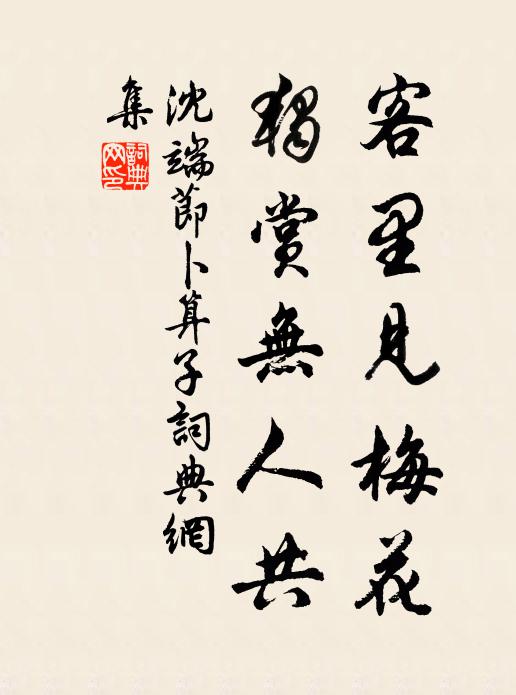 客里見梅花
獨賞無人共
沈端節卜算子詞典網
集
詞典
网印